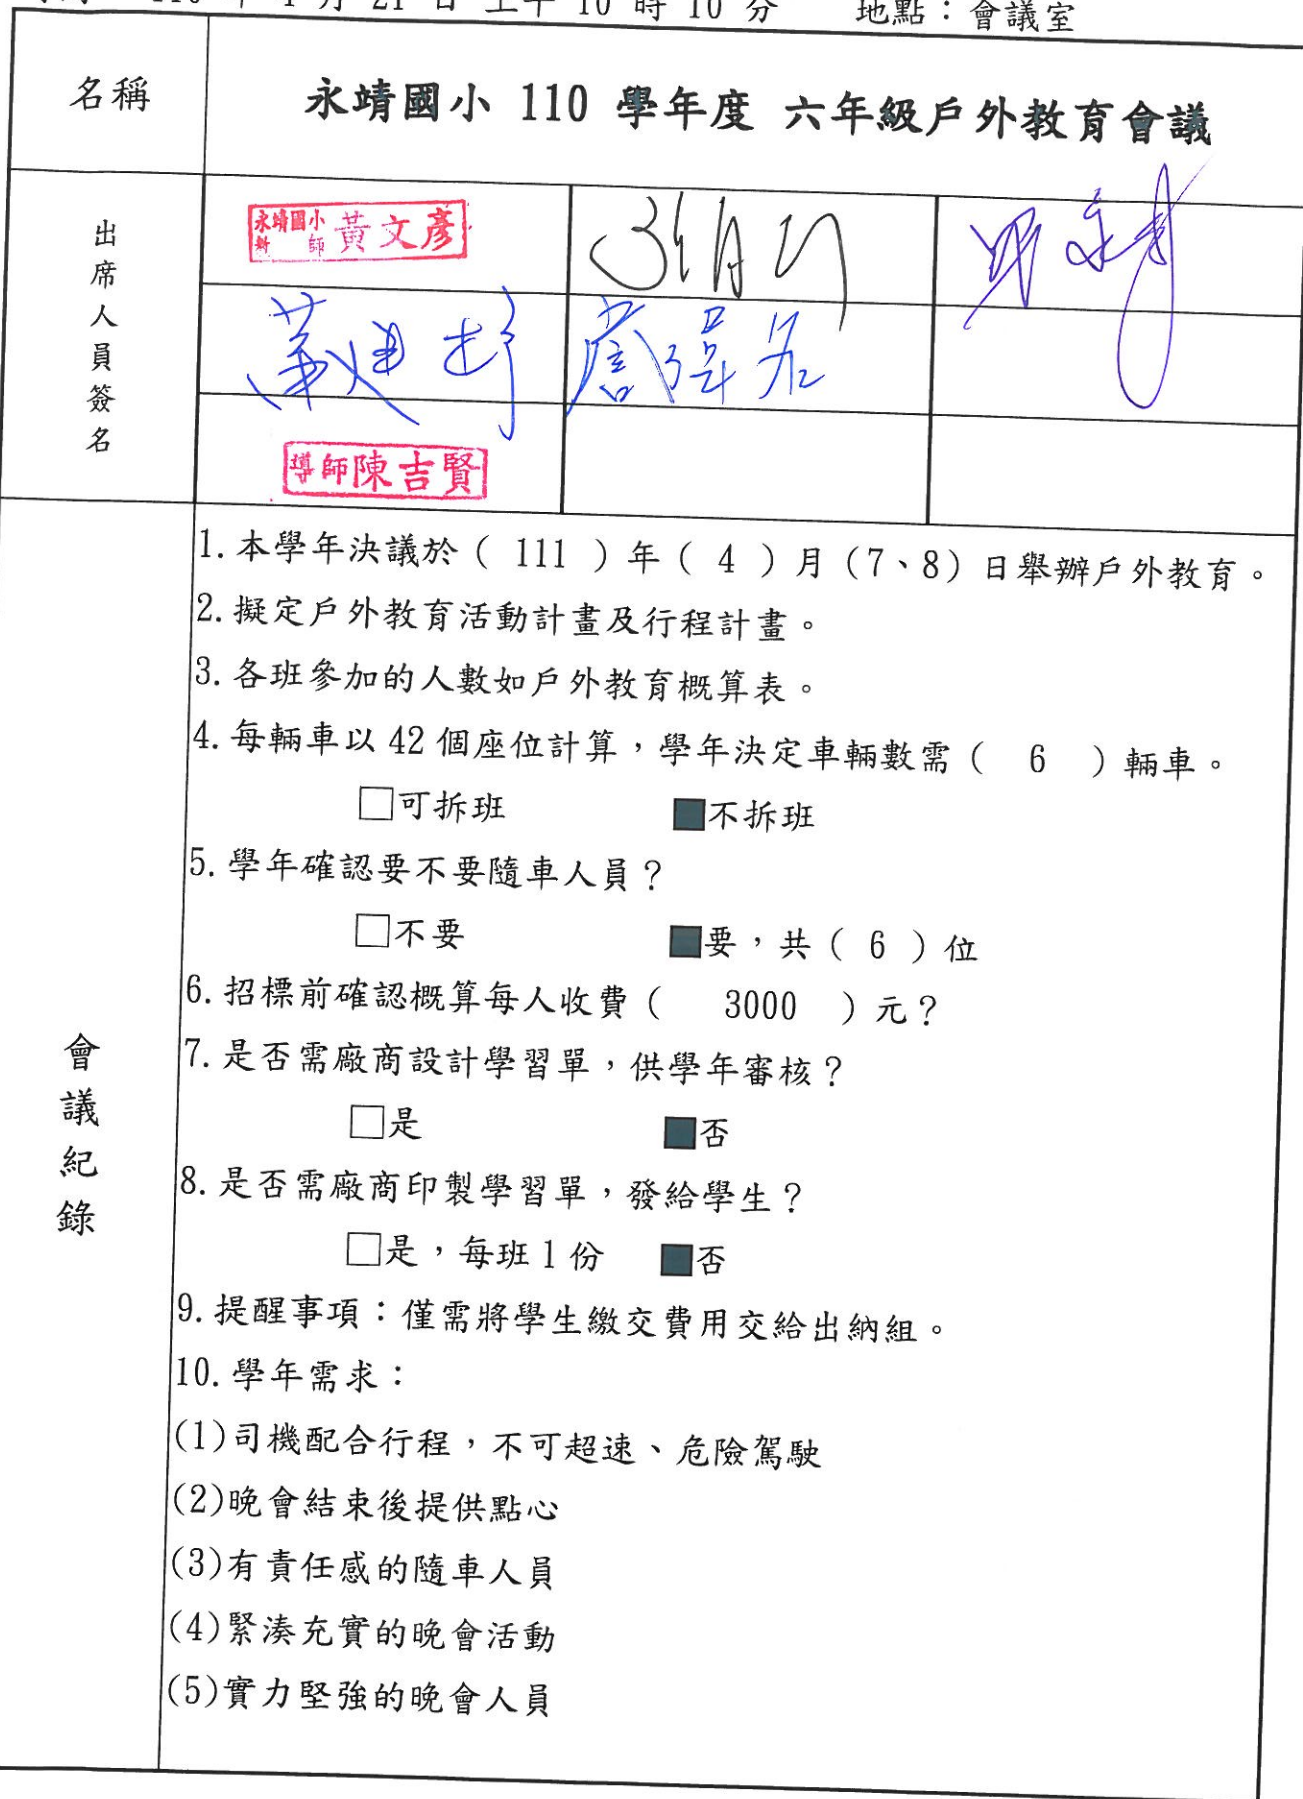 110 年 1 月 21 日 上午 10 時 10 分 地點：會議室
名稱
永靖國小 110 學年度 六年級戶外教育會議
出席人員簽名
永靖國小 黃文彥
導師陳吉賢
會議紀錄
1.本學年決議於（ 111 ）年（ 4 ）月（7、8）日舉辦戶外教育。
2.擬定戶外教育活動計畫及行程計畫。
3.各班參加的人數如戶外教育概算表。
4.每輛車以 42 個座位計算，學年決定車輛數需（ 6 ）輛車。
□可拆班 ■不拆班
5.學年確認要不要隨車人員？
□不要 ■要，共（ 6 ）位
6.招標前確認概算每人收費（ 3000 ）元？
7.是否需廠商設計學習單，供學年審核？
□是 ■否
8.是否需廠商印製學習單，發給學生？
□是，每班 1 份 ■否
9.提醒事項：僅需將學生繳交費用交給出納組。
10.學年需求：
(1)司機配合行程，不可超速、危險駕駛
(2)晚會結束後提供點心
(3)有責任感的隨車人員
(4)緊湊充實的晚會活動
(5)實力堅強的晚會人員